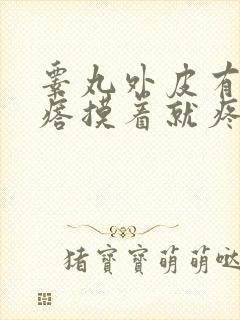 睾丸外皮有
痞摸着就疼
猪寶寶萌萌哒